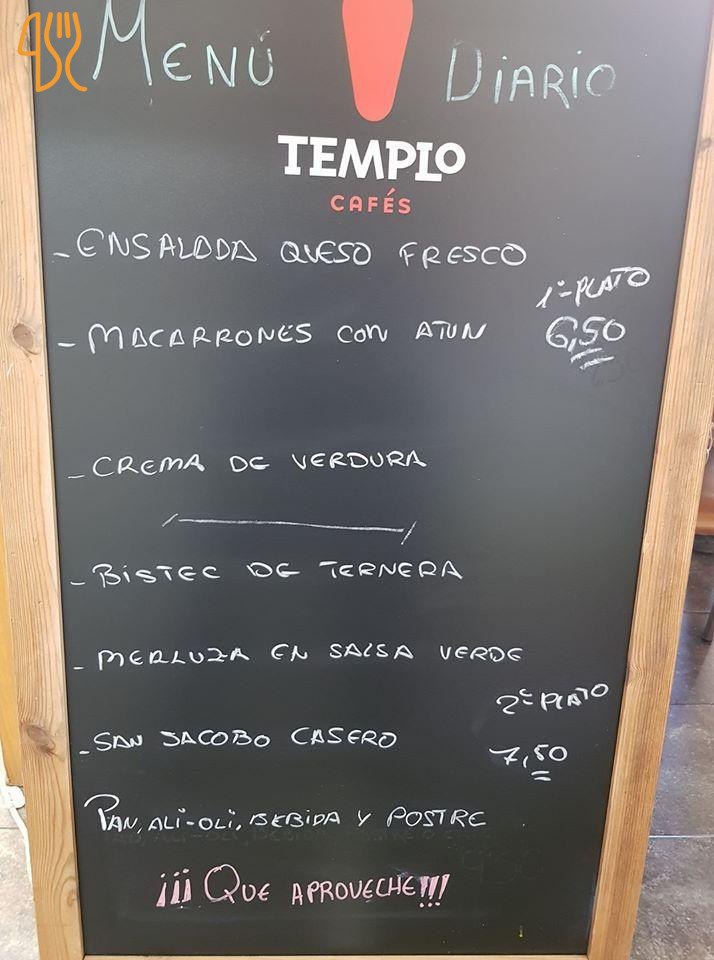 MENÚ DIARIO
TEMPLO
CAFÉS
- ENSALADA QUESO FRESCO
1º PLATO
- MACARRONES CON ATUN 6,50
- CREMA DE VERDURA
- BISTEC DE TERNERA
- MERLUZA EN SALSA VERDE
2º PLATO
- SAN JACOBO CASERO 7,50
PAN, ALI-OLI, BEBIDA Y POSTRE
¡¡¡ QUE APROVECHE!!!